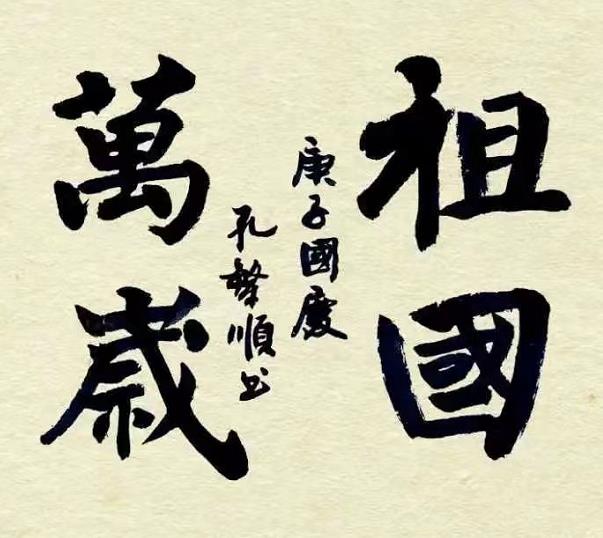 祖國
萬歲
庚子國慶
孔繁順书